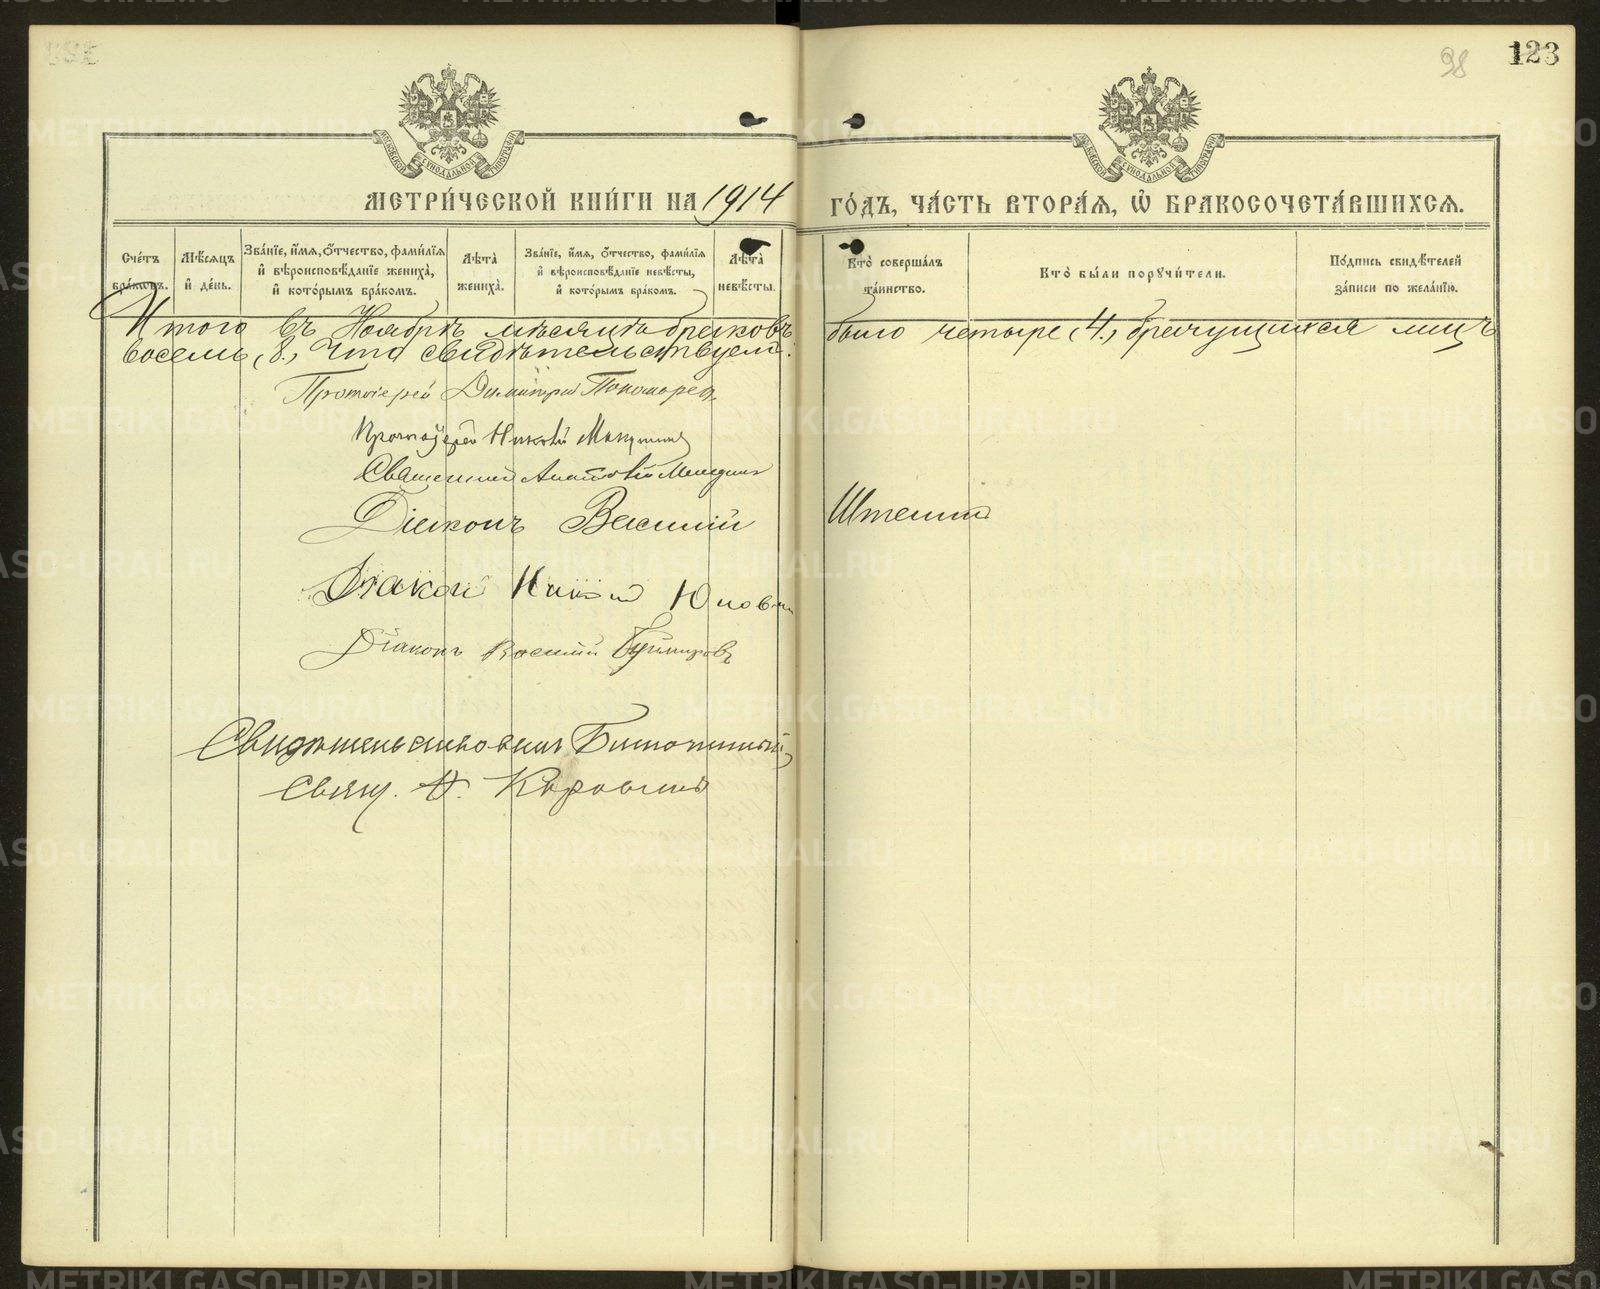 98
123
МОСКОВСКОЙ СѴНОДАЛЬНОЙ ТИПОГРАФІИ
МОСКОВСКОЙ СѴНОДАЛЬНОЙ ТИПОГРАФІИ
МЕТРИ́ЧЕСКОЙ КНИ́ГИ НА 1914 ГО́ДЪ, ЧА́СТЬ ВТОРА́Я, Ѡ҆ БРАКОСОЧЕТА́ВШИХСЯ.
Сче́тъ бра́ковъ.
Мѣ́сяцъ и҆ де́нь.
Зва́нїе, и҆́мя, ѻ҆́тчество, фами́лїя и҆ вѣроисповѣ́данїе жениха̀, и҆ кото́рымъ бра́комъ.
Лѣта̀ жениха̀.
Зва́нїе, и҆́мя, ѻ҆́тчество, фами́лїя и҆ вѣроисповѣ́данїе невѣ́сты, и҆ кото́рымъ бра́комъ.
Лѣта̀ невѣ́сты.
Кто̀ соверша́лъ та́инство.
Кто̀ бы́ли порꙋчи́тели.
По́дпись свидѣ́телей за́писи по жела́нїю.
Итого въ Ноябрѣ мѣсяцѣ браковъ было четыре (4), брачущихся лицъ
восемь (8), что свидѣтельствуемъ:
Протоіерей Димитрій Пономаревъ
Протоіерей Николай
Священникъ Анатолій
Діаконъ Василій
Діаконъ
Діаконъ Василій
Свидѣтельствовалъ Благочинный,
Свящ.
METRIKI.GASO-URAL.RU